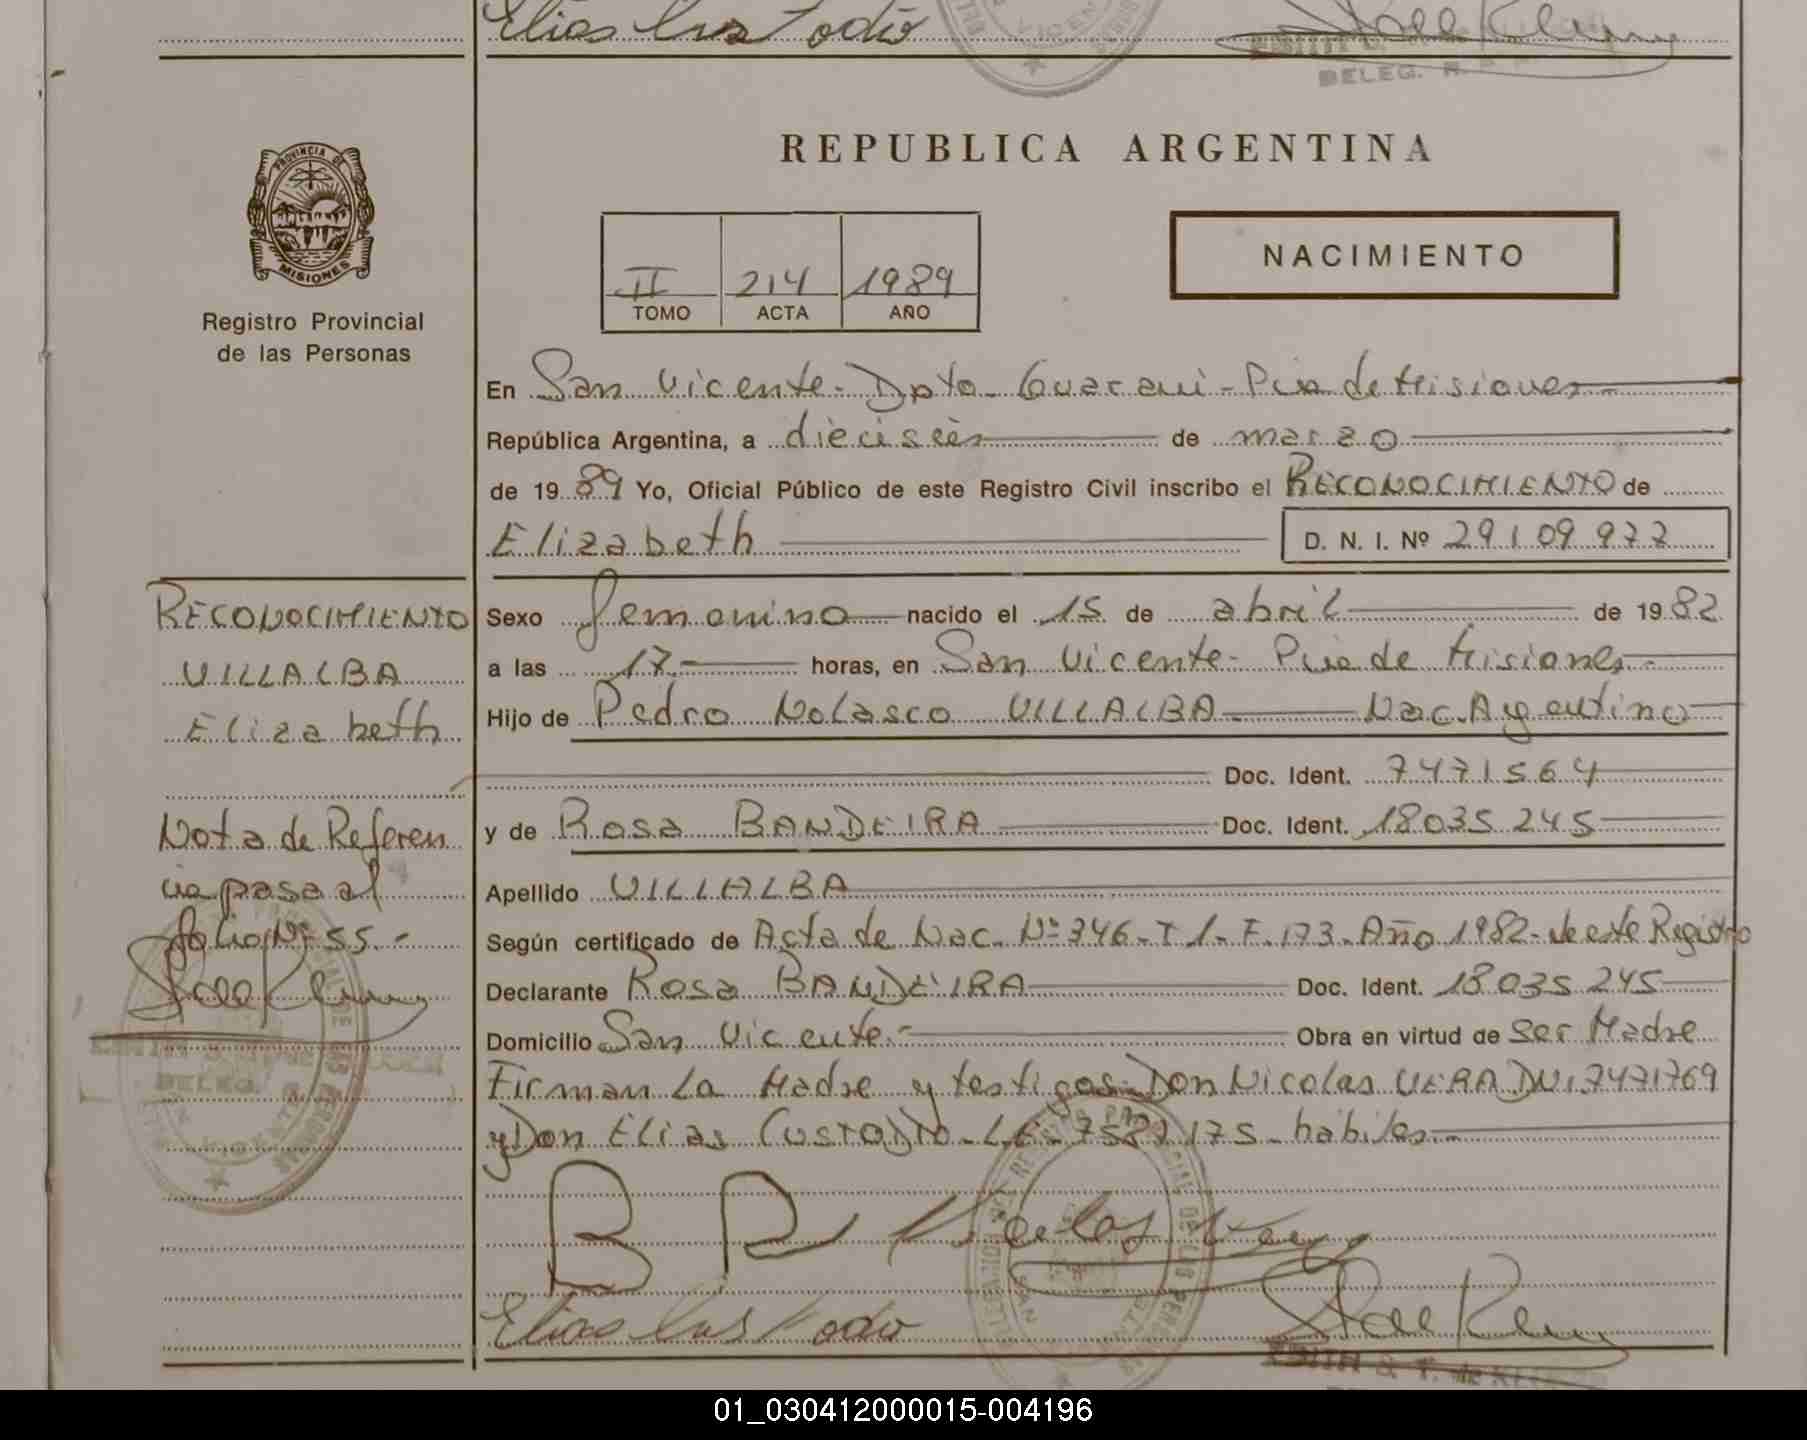 Elias Custodio
BELEG. R. P.
PROVINCIA DE
MISIONES
Registro Provincial
de las Personas
REPUBLICA ARGENTINA
II 214 1989
TOMO ACTA AÑO
NACIMIENTO
En San Vicente- Dpto- Guarani- Pcia de Misiones-
República Argentina, a dieciseis de marzo
de 1989 Yo, Oficial Público de este Registro Civil inscribo el RECONOCIMIENTO de
Elizabeth D. N. I. Nº 29109977
RECONOCIMIENTO
VILLALBA
Elizabeth
Nota de Referen
cia pasa al
folio Nº 55.-
BELEG.
Sexo femenino nacido el 15 de abril de 1982
a las 17.- horas, en San Vicente- Pcia de Misiones-
Hijo de Pedro Nolasco VILLALBA Nac. Argentino
Doc. Ident. 7471564
y de Rosa BANDEIRA Doc. Ident. 18035245
Apellido VILLALBA
Según certificado de Acta de Nac. Nº 346- T 1- F. 173- Año 1982- de este Registro
Declarante Rosa BANDEIRA Doc. Ident. 18035245
Domicilio San Vicente.- Obra en virtud de ser Madre
Firman La Madre y testigos- Don Nicolas VERA DNI 7471769
y Don Elias CUSTODIO- L.E- 7587175- habiles.-
B R Nicolas Vera
Elias Custodio
EDITH S. T. de
01_030412000015-004196